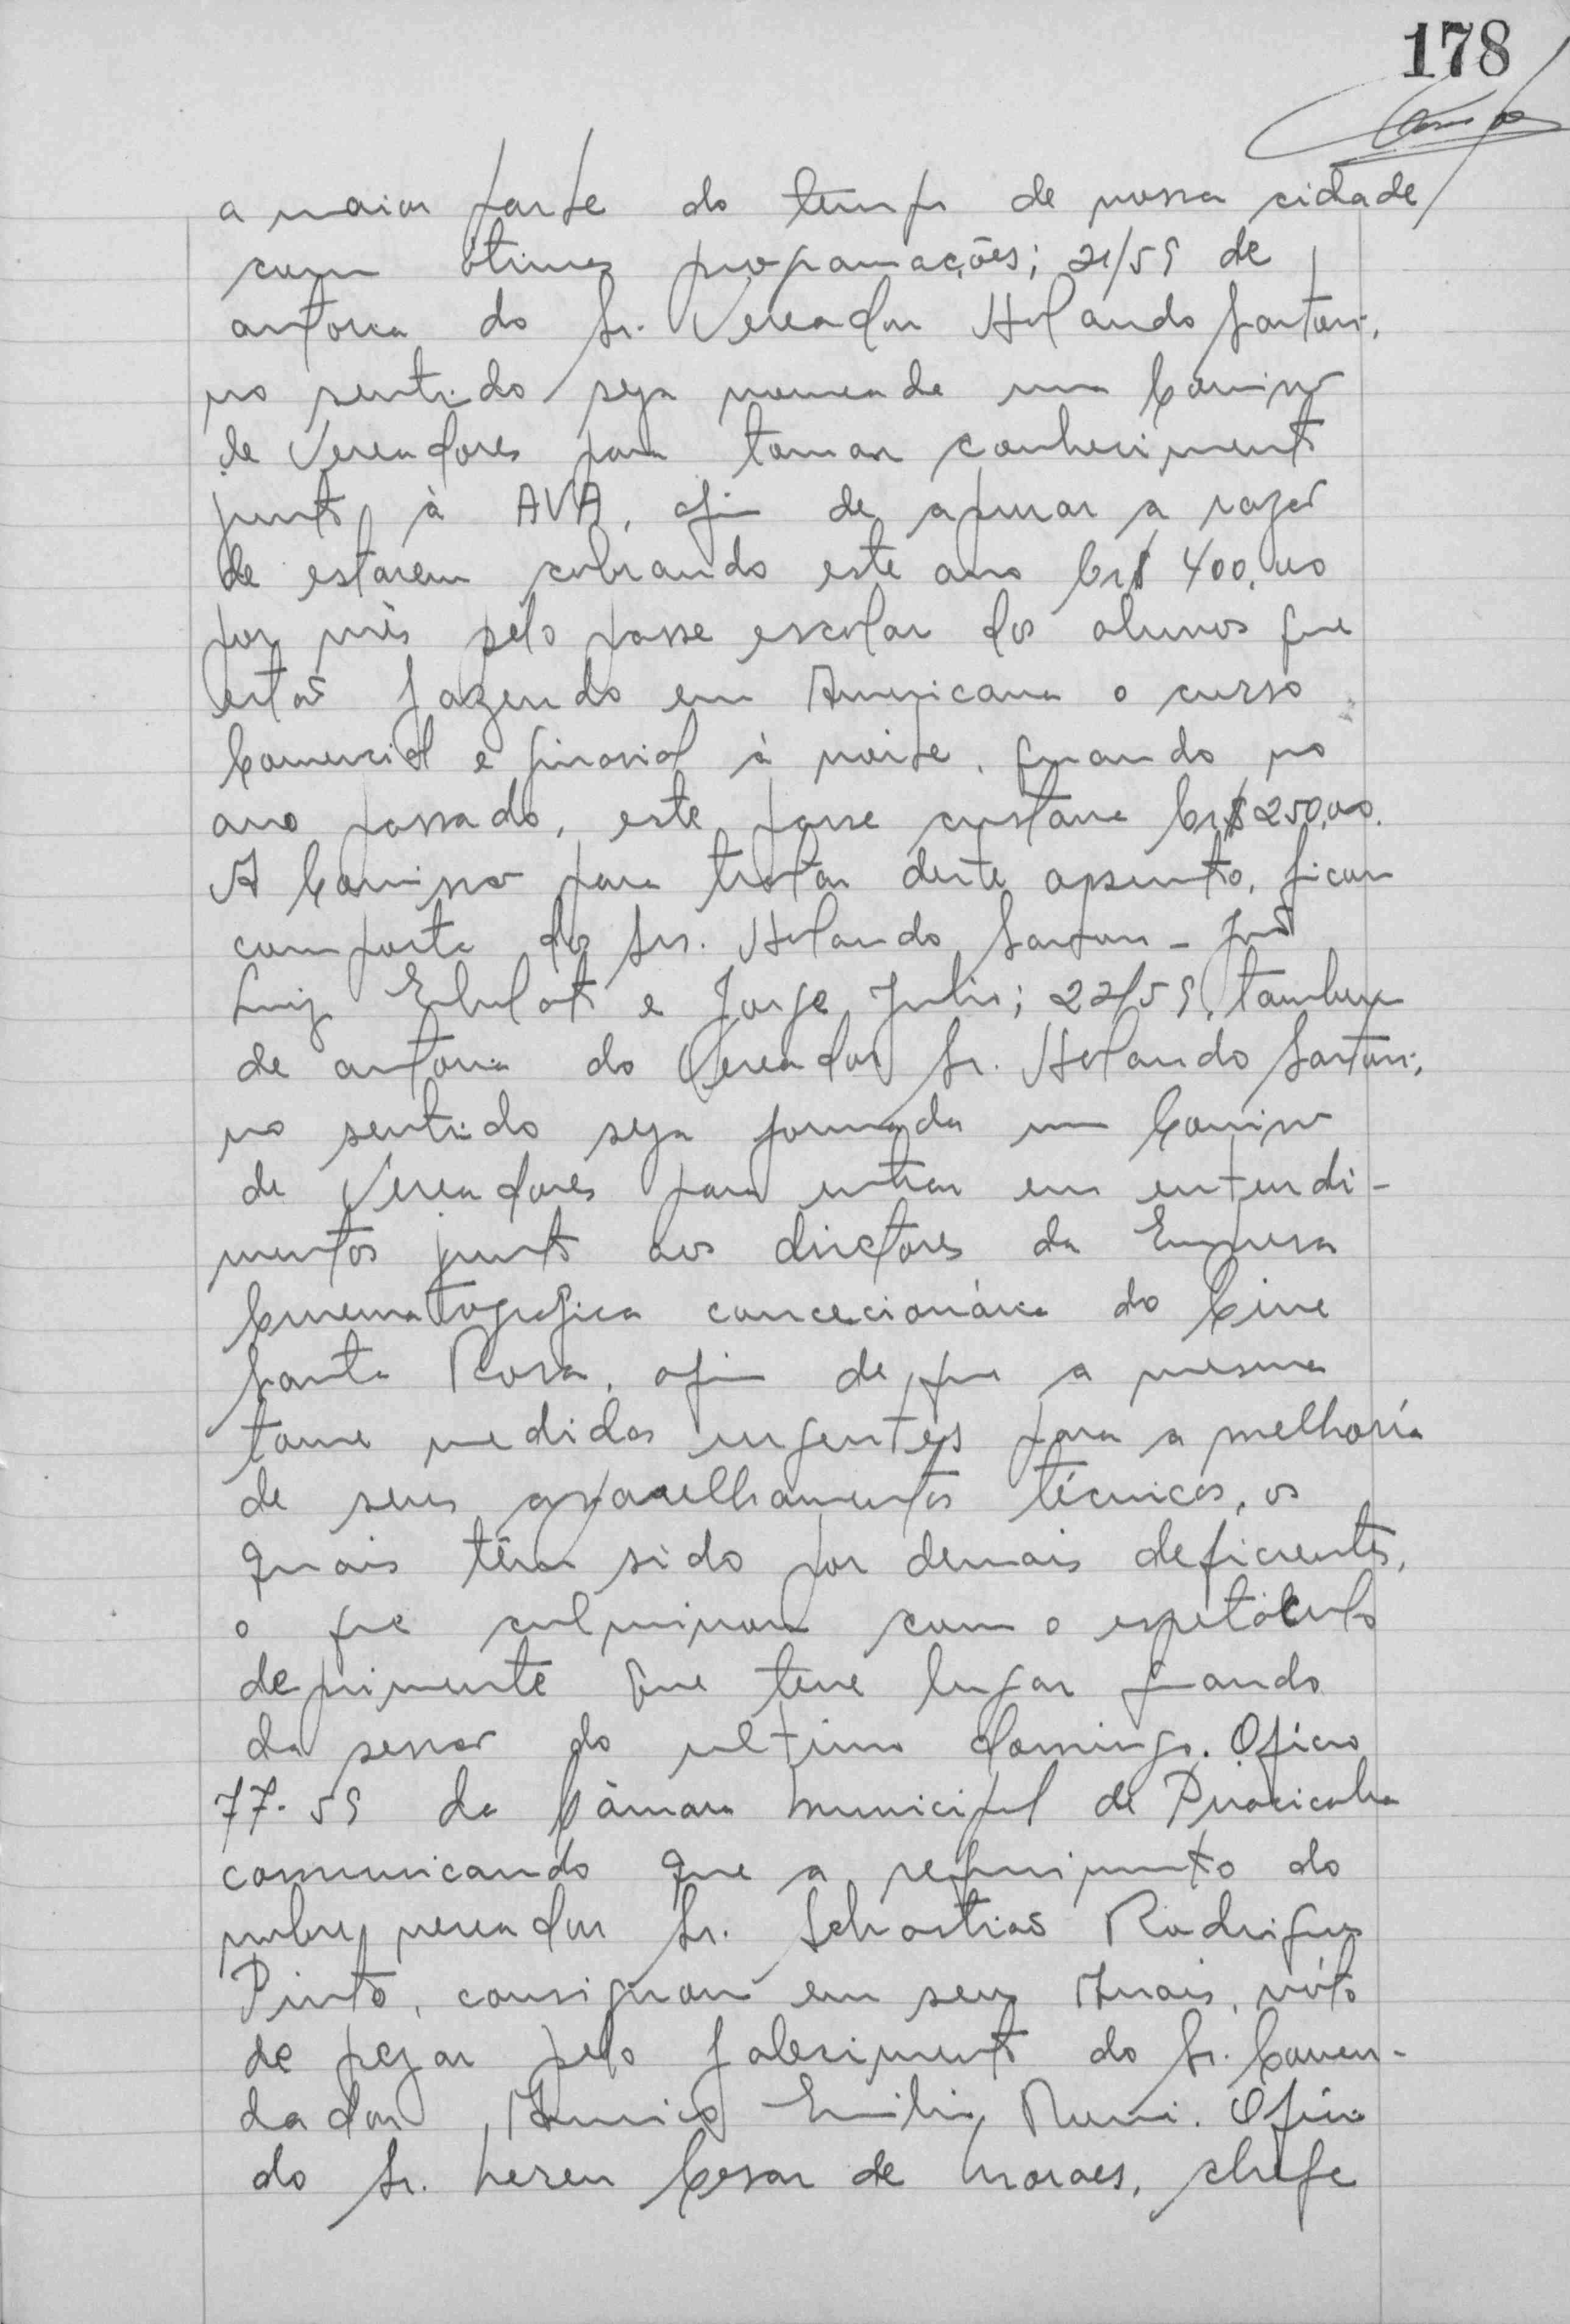 178
a maior parte do tempo de nossa cidade
com ótimas programações; 21/59 de
autoria do Sr. Vereador Holando Sartori,
no sentido seja nomeada uma Comissão
de Vereadores para tomar conhecimento
junto à AVA, afim de apurar a razão
de estarem cobrando este ano Cr$ 400,00
por mês pelo passe escolar dos alunos que
estão fazendo em Americana o curso
Comercial e ginasial à noite, quando no
ano passado, este passe custava Cr$ 250,00.
A Comissão para tratar deste assunto, ficou
composta dos Srs. Holando Sartori - José
Luiz e Jorge Julio; 22/59, tambem
de autoria do Vereador Sr. Holando Sartori,
no sentido seja formada uma Comissão
de Vereadores para entrar em entendi-
mentos junto aos diretores da Empresa
Cinematografica concecionária do Cine
Santa Rosa, afim de que a mesma
tome medidas urgentes para a melhoria
de seus aparelhamentos técnicos, os
quais têm sido por demais deficientes,
o que culminou com o espetáculo
deprimente que teve lugar quando
da sessão do ultimo domingo. Oficio
77-59 da Câmara Municipal de Piracicaba
comunicando que a requerimento do
nobre vereador Sr. Sebastião Rodrigues
Pinto, consignou em seus Anais, vóto
de pezar pelo falecimento do Sr. Comen-
dador Americo Emilio Romi. Oficio
do Sr. Neren Cesar de Moraes, chefe